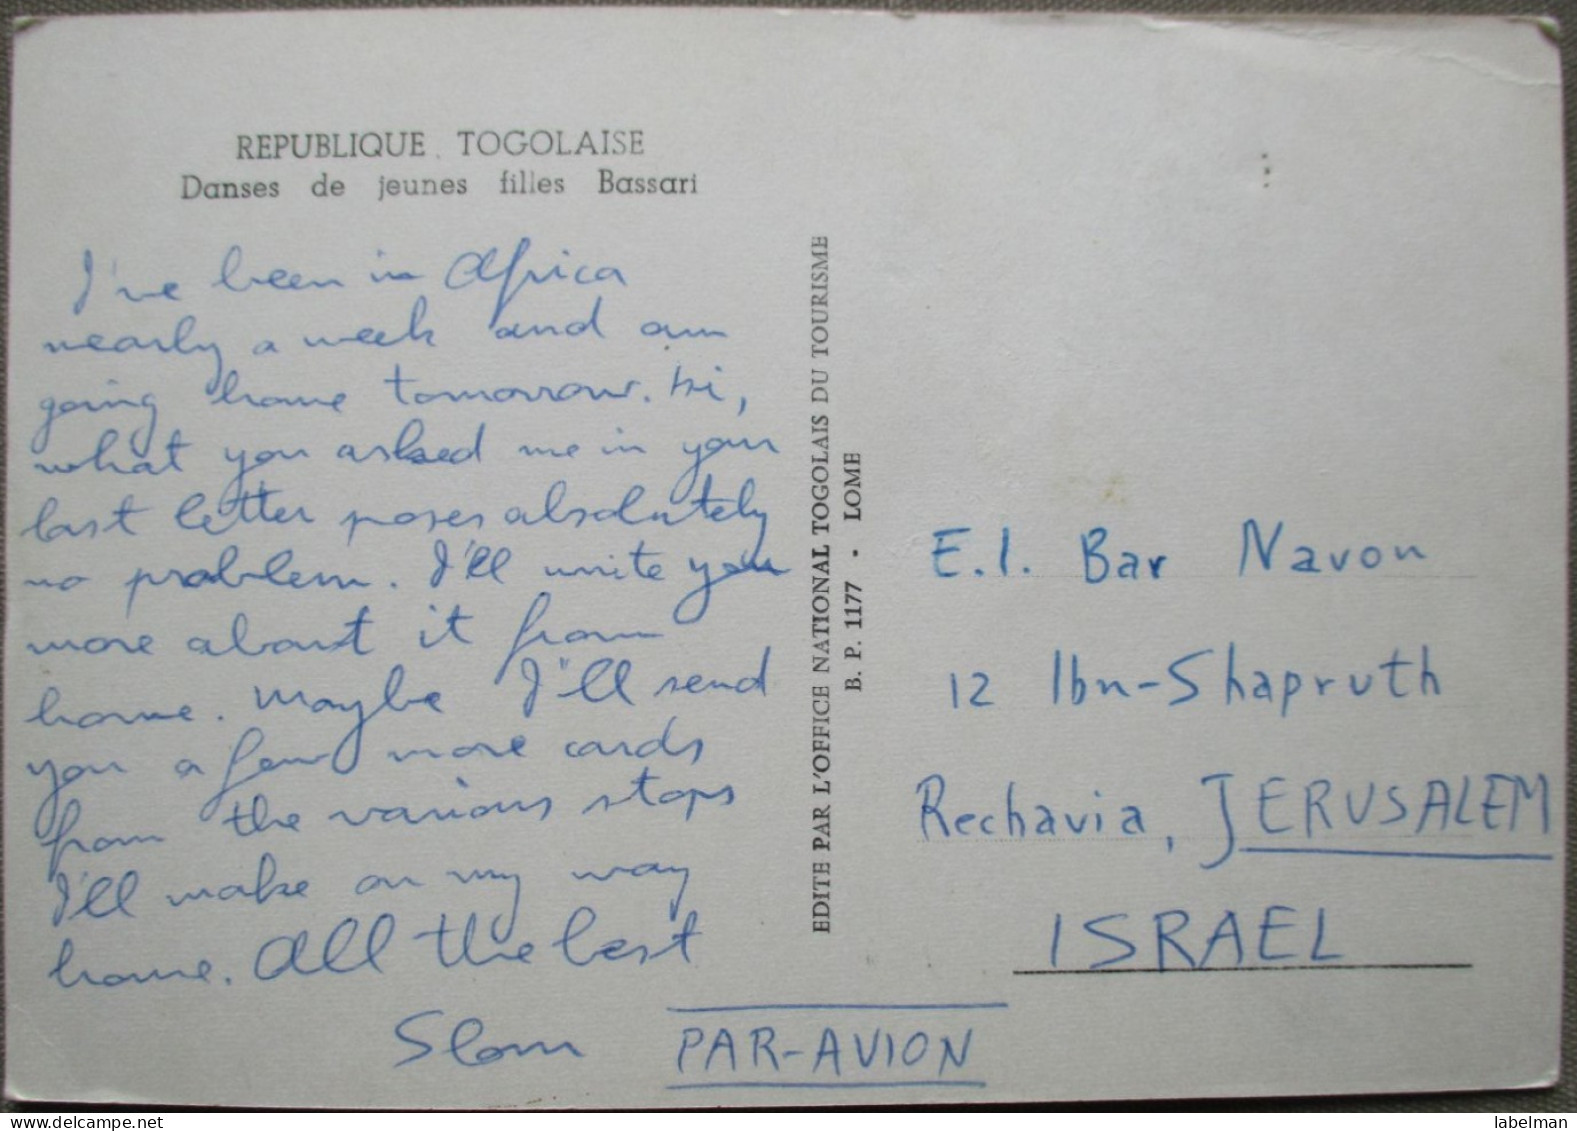 REPUBLIQUE TOGOLAISE
Danses de jeunes filles Bassari
I've been in Africa
nearly a week and am
going home tomorrow. ,
what you asked me in your
last letter poses absolutely
no problem. I'll write you
more about it from
home. Maybe I'll send
you a few more cards
from the various stops
I'll make on my way
home. All the best
PAR-AVION
EDITE PAR L'OFFICE NATIONAL TOGOLAIS DU TOURISME
B. P. 1177 • LOME
E.I. Bar Navon
12 Ibn-Shapruth
Rechavia, JERUSALEM
ISRAEL
labelman
delcampe.net